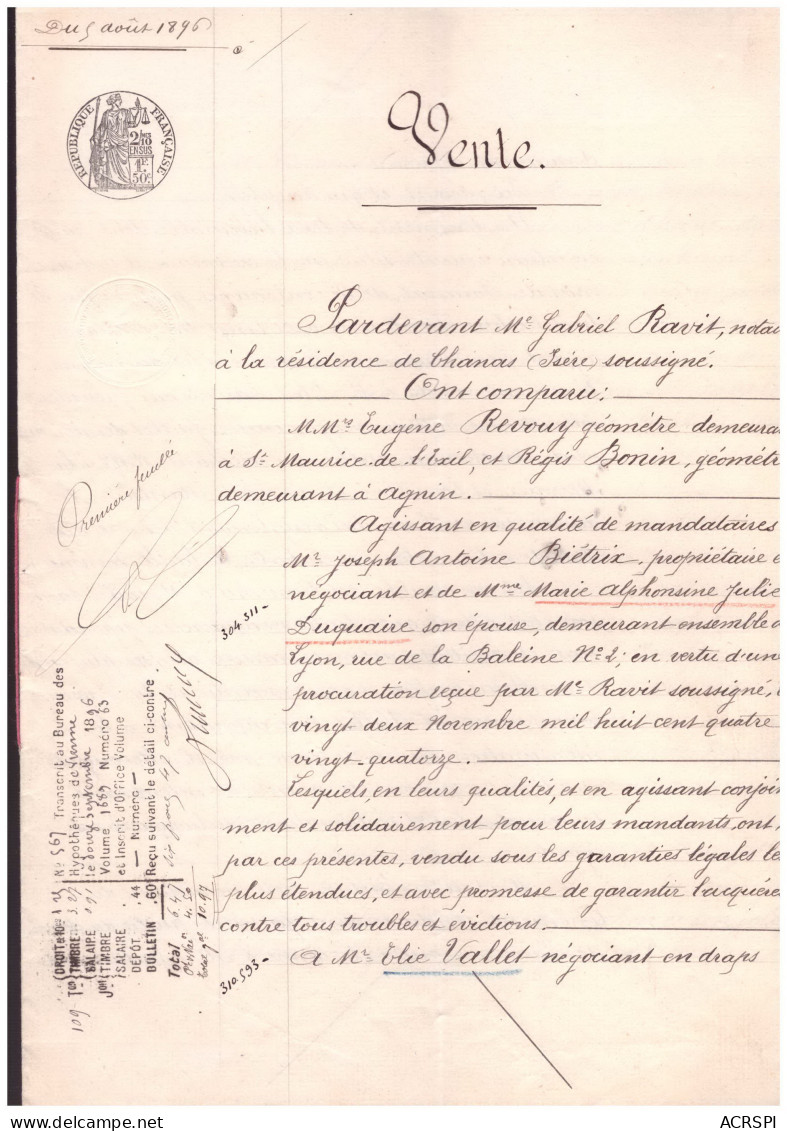 Du 5 août 1896
RÉPUBLIQUE FRANÇAISE
2/10
EN SUS
1F.
50c
Vente.
Pardevant Me Gabriel Ravit, nota
à la résidence de Chanas (Isère) soussigné.
Ont comparu:
MMrs Eugène Revouy géomètre demeura
à St Maurice-de-l'Exil, et Régis Bonin, géomètr
demeurant à Agnin.
Agissant en qualité de mandataires
Mr Joseph Antoine Biétrix, propriétaire e
négociant et de Mme Marie Alphonsine Julie
Duguaire son épouse, demeurant ensemble
Lyon, rue de la Baleine No 2; en vertu d'une
procuration reçue par Me Ravit soussigné,
vingt deux Novembre mil huit cent quatre
vingt-quatorze.
Lesquels, en leurs qualités, et en agissant conjoin
ment et solidairement pour leurs mandants, ont,
par ces présentes, vendu sous les garanties légales le
plus étendues, et avec promesse de garantir l'acquére
contre tous troubles et évictions.
A Mr Elie Vallet négociant en draps
Première feuille
304.311-
310.593-
No 567 Transcrit au Bureau des
Hypothèques de Vienne
le douze Septembre 1896
Volume 1689 Numéro 63
et Inscrit d'Office Volume
— Numéro —
Reçu suivant le détail ci-contre
DROIT
TIMBRE
SALAIRE
TIMBRE
SALAIRE
DÉPÔT 44
BULLETIN 60
Total 6.47
4.50
10.97
109
ACRSPI